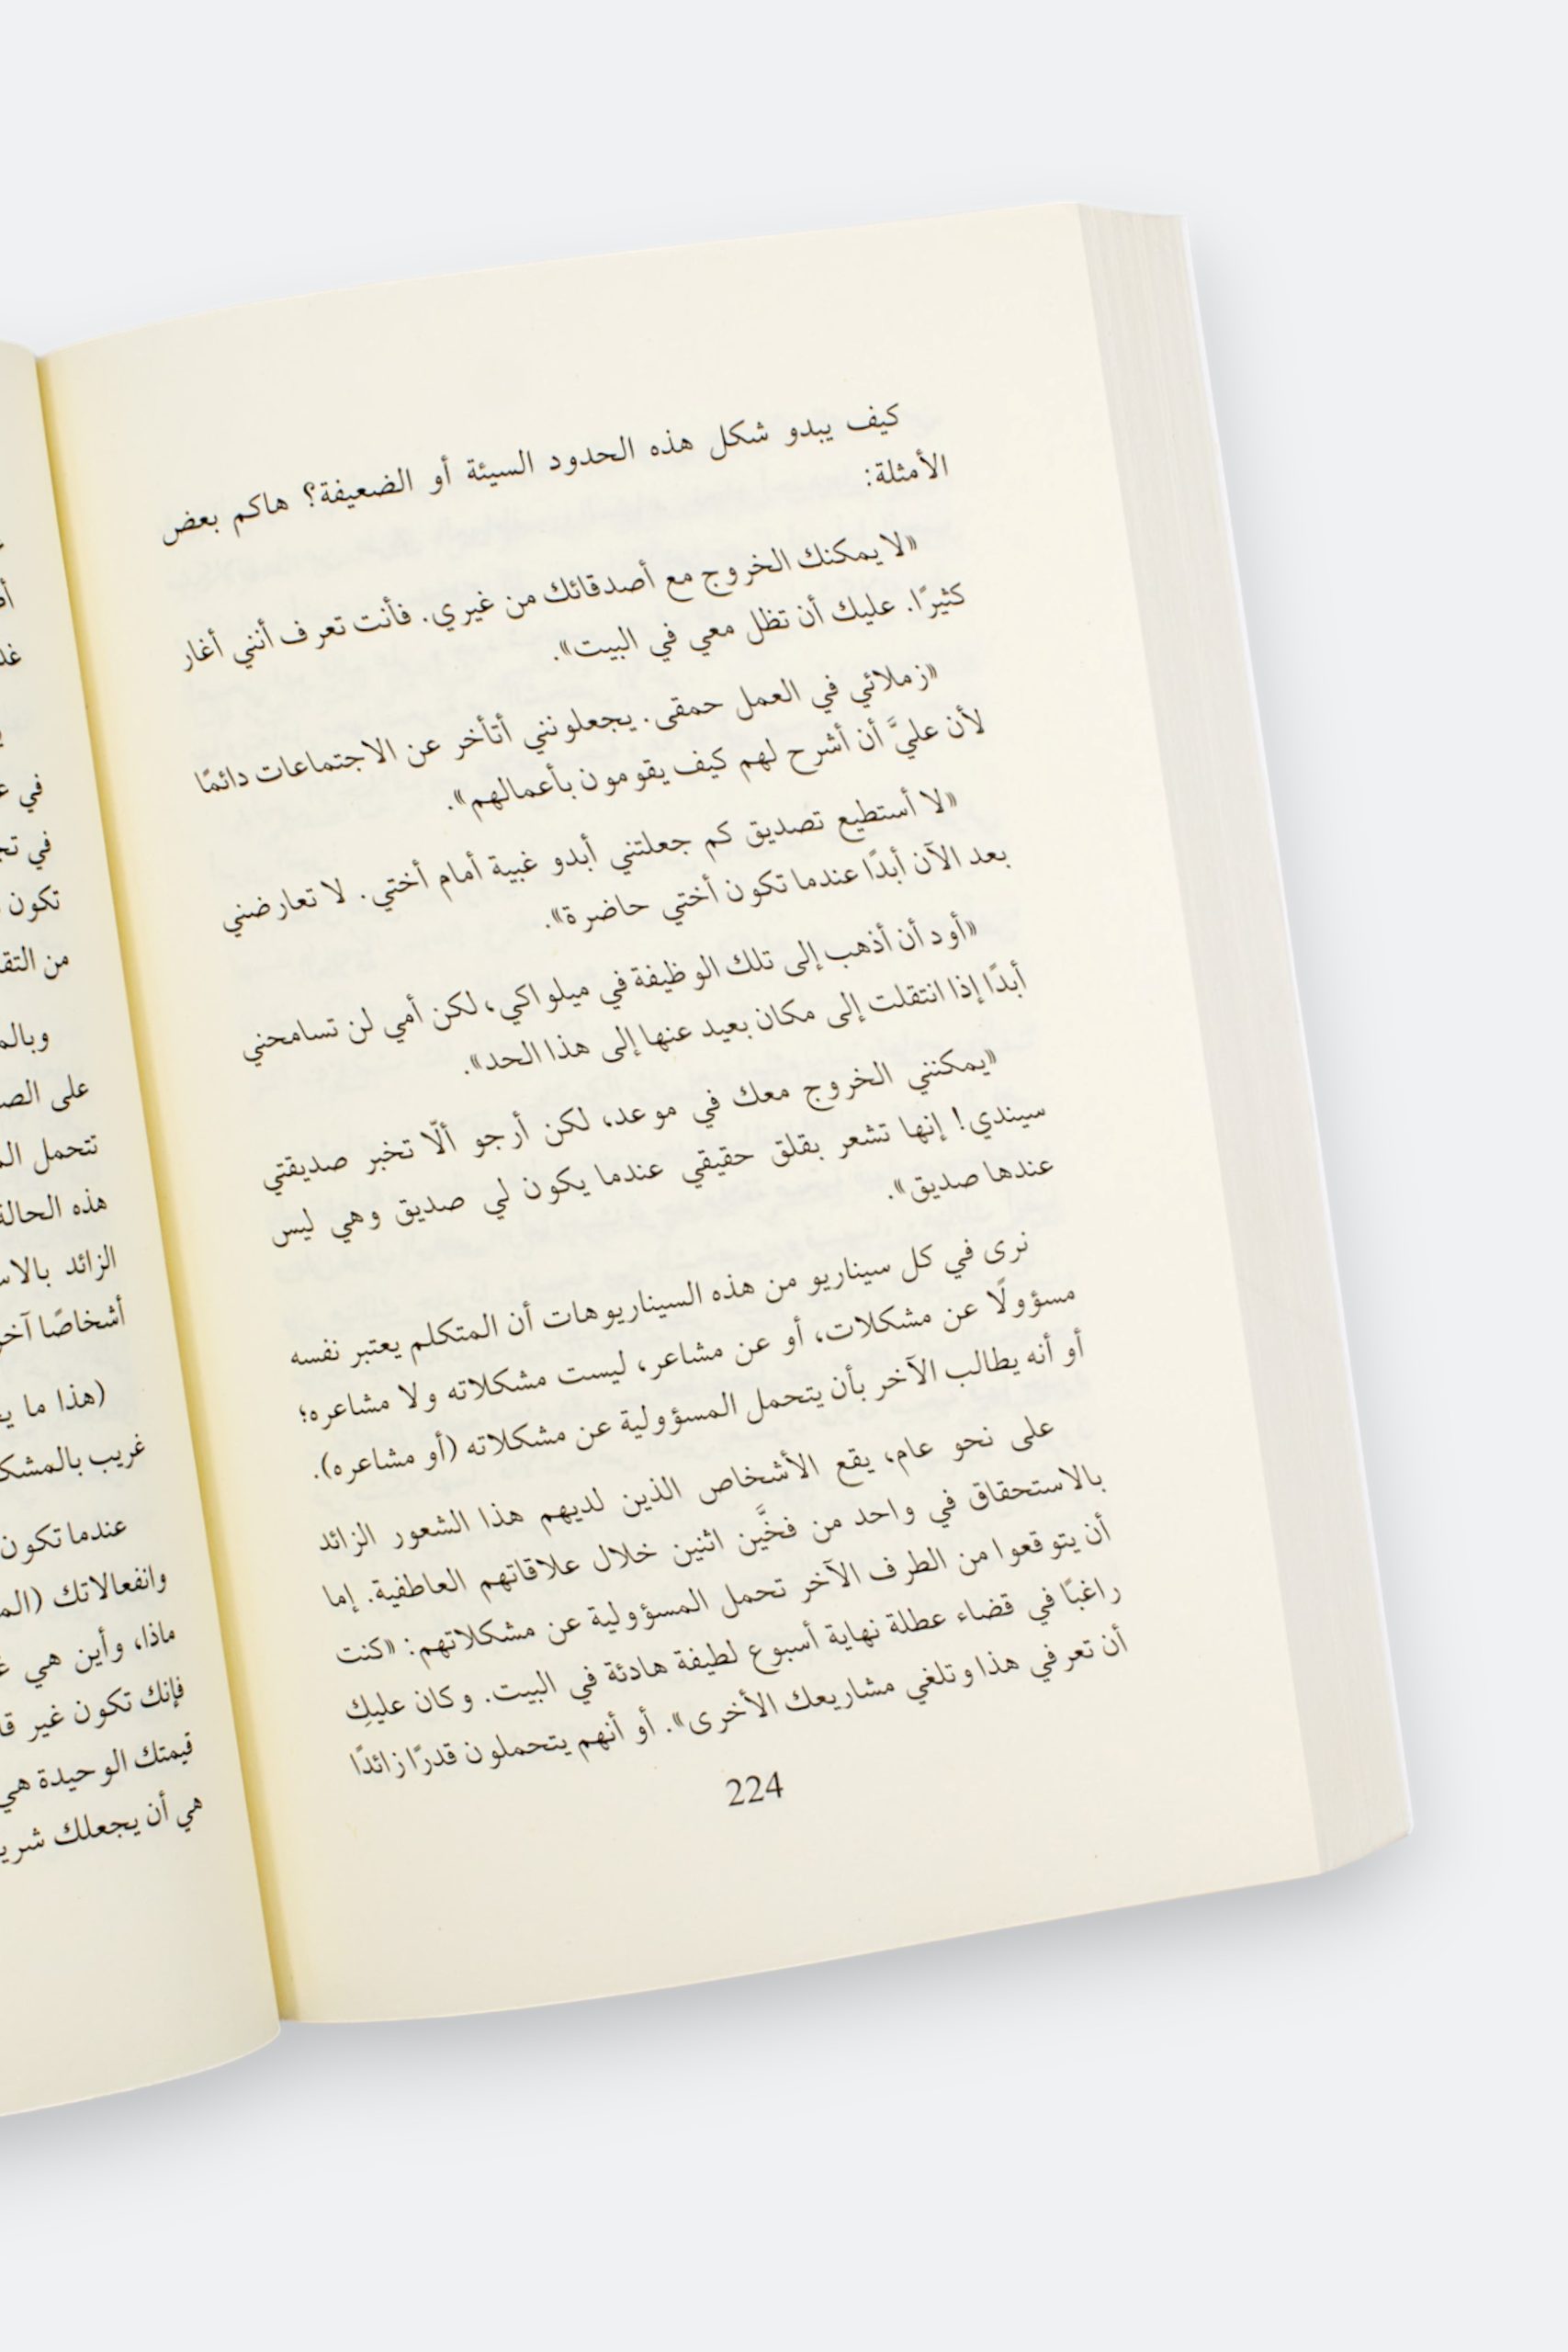 كيف يبدو شكل هذه الحدود السيئة أو الضعيفة؟ هاكم بعض
الأمثلة:
«لا يمكنك الخروج مع أصدقائك من غيري. فأنت تعرف أنني أغار
كثيرًا. عليك أن تظل معي في البيت».
«زملائي في العمل حمقى. يجعلونني أتأخر عن الاجتماعات دائمًا
لأن عليَّ أن أشرح لهم كيف يقومون بأعمالهم».
«لا أستطيع تصديق كم جعلتني أبدو غبية أمام أختي. لا تعارضني
بعد الآن أبدًا عندما تكون أختي حاضرة».
«أود أن أذهب إلى تلك الوظيفة في ميلواكي، لكن أمي لن تسامحني
أبدًا إذا انتقلت إلى مكان بعيد عنها إلى هذا الحد».
«يمكنني الخروج معك في موعد، لكن أرجو ألّا تخبر صديقتي
سيندي! إنها تشعر بقلق حقيقي عندما يكون لي صديق وهي ليس
عندها صديق».
نرى في كل سيناريو من هذه السيناريوهات أن المتكلم يعتبر نفسه
مسؤولًا عن مشكلات، أو عن مشاعر، ليست مشكلاته ولا مشاعره؛
أو أنه يطالب الآخر بأن يتحمل المسؤولية عن مشكلاته (أو مشاعره).
على نحو عام، يقع الأشخاص الذين لديهم هذا الشعور الزائد
بالاستحقاق في واحد من فخَّين اثنين خلال علاقاتهم العاطفية. إما
أن يتوقعوا من الطرف الآخر تحمل المسؤولية عن مشكلاتهم: «كنت
راغبًا في قضاء عطلة نهاية أسبوع لطيفة هادئة في البيت. وكان عليكِ
أن تعرفي هذا وتلغي مشاريعك الأخرى». أو أنهم يتحملون قدرًا زائدًا
224
في
في
تكون
من
على
تتحمل
هذه الحالة
الزائد
أشخاصًا
(هذا ما
غريب
عندما تكون
وانفعالاتك
ماذا، وأين هي
فإنك تكون غير
قيمتك الوحيدة هي
هي أن يجعلك